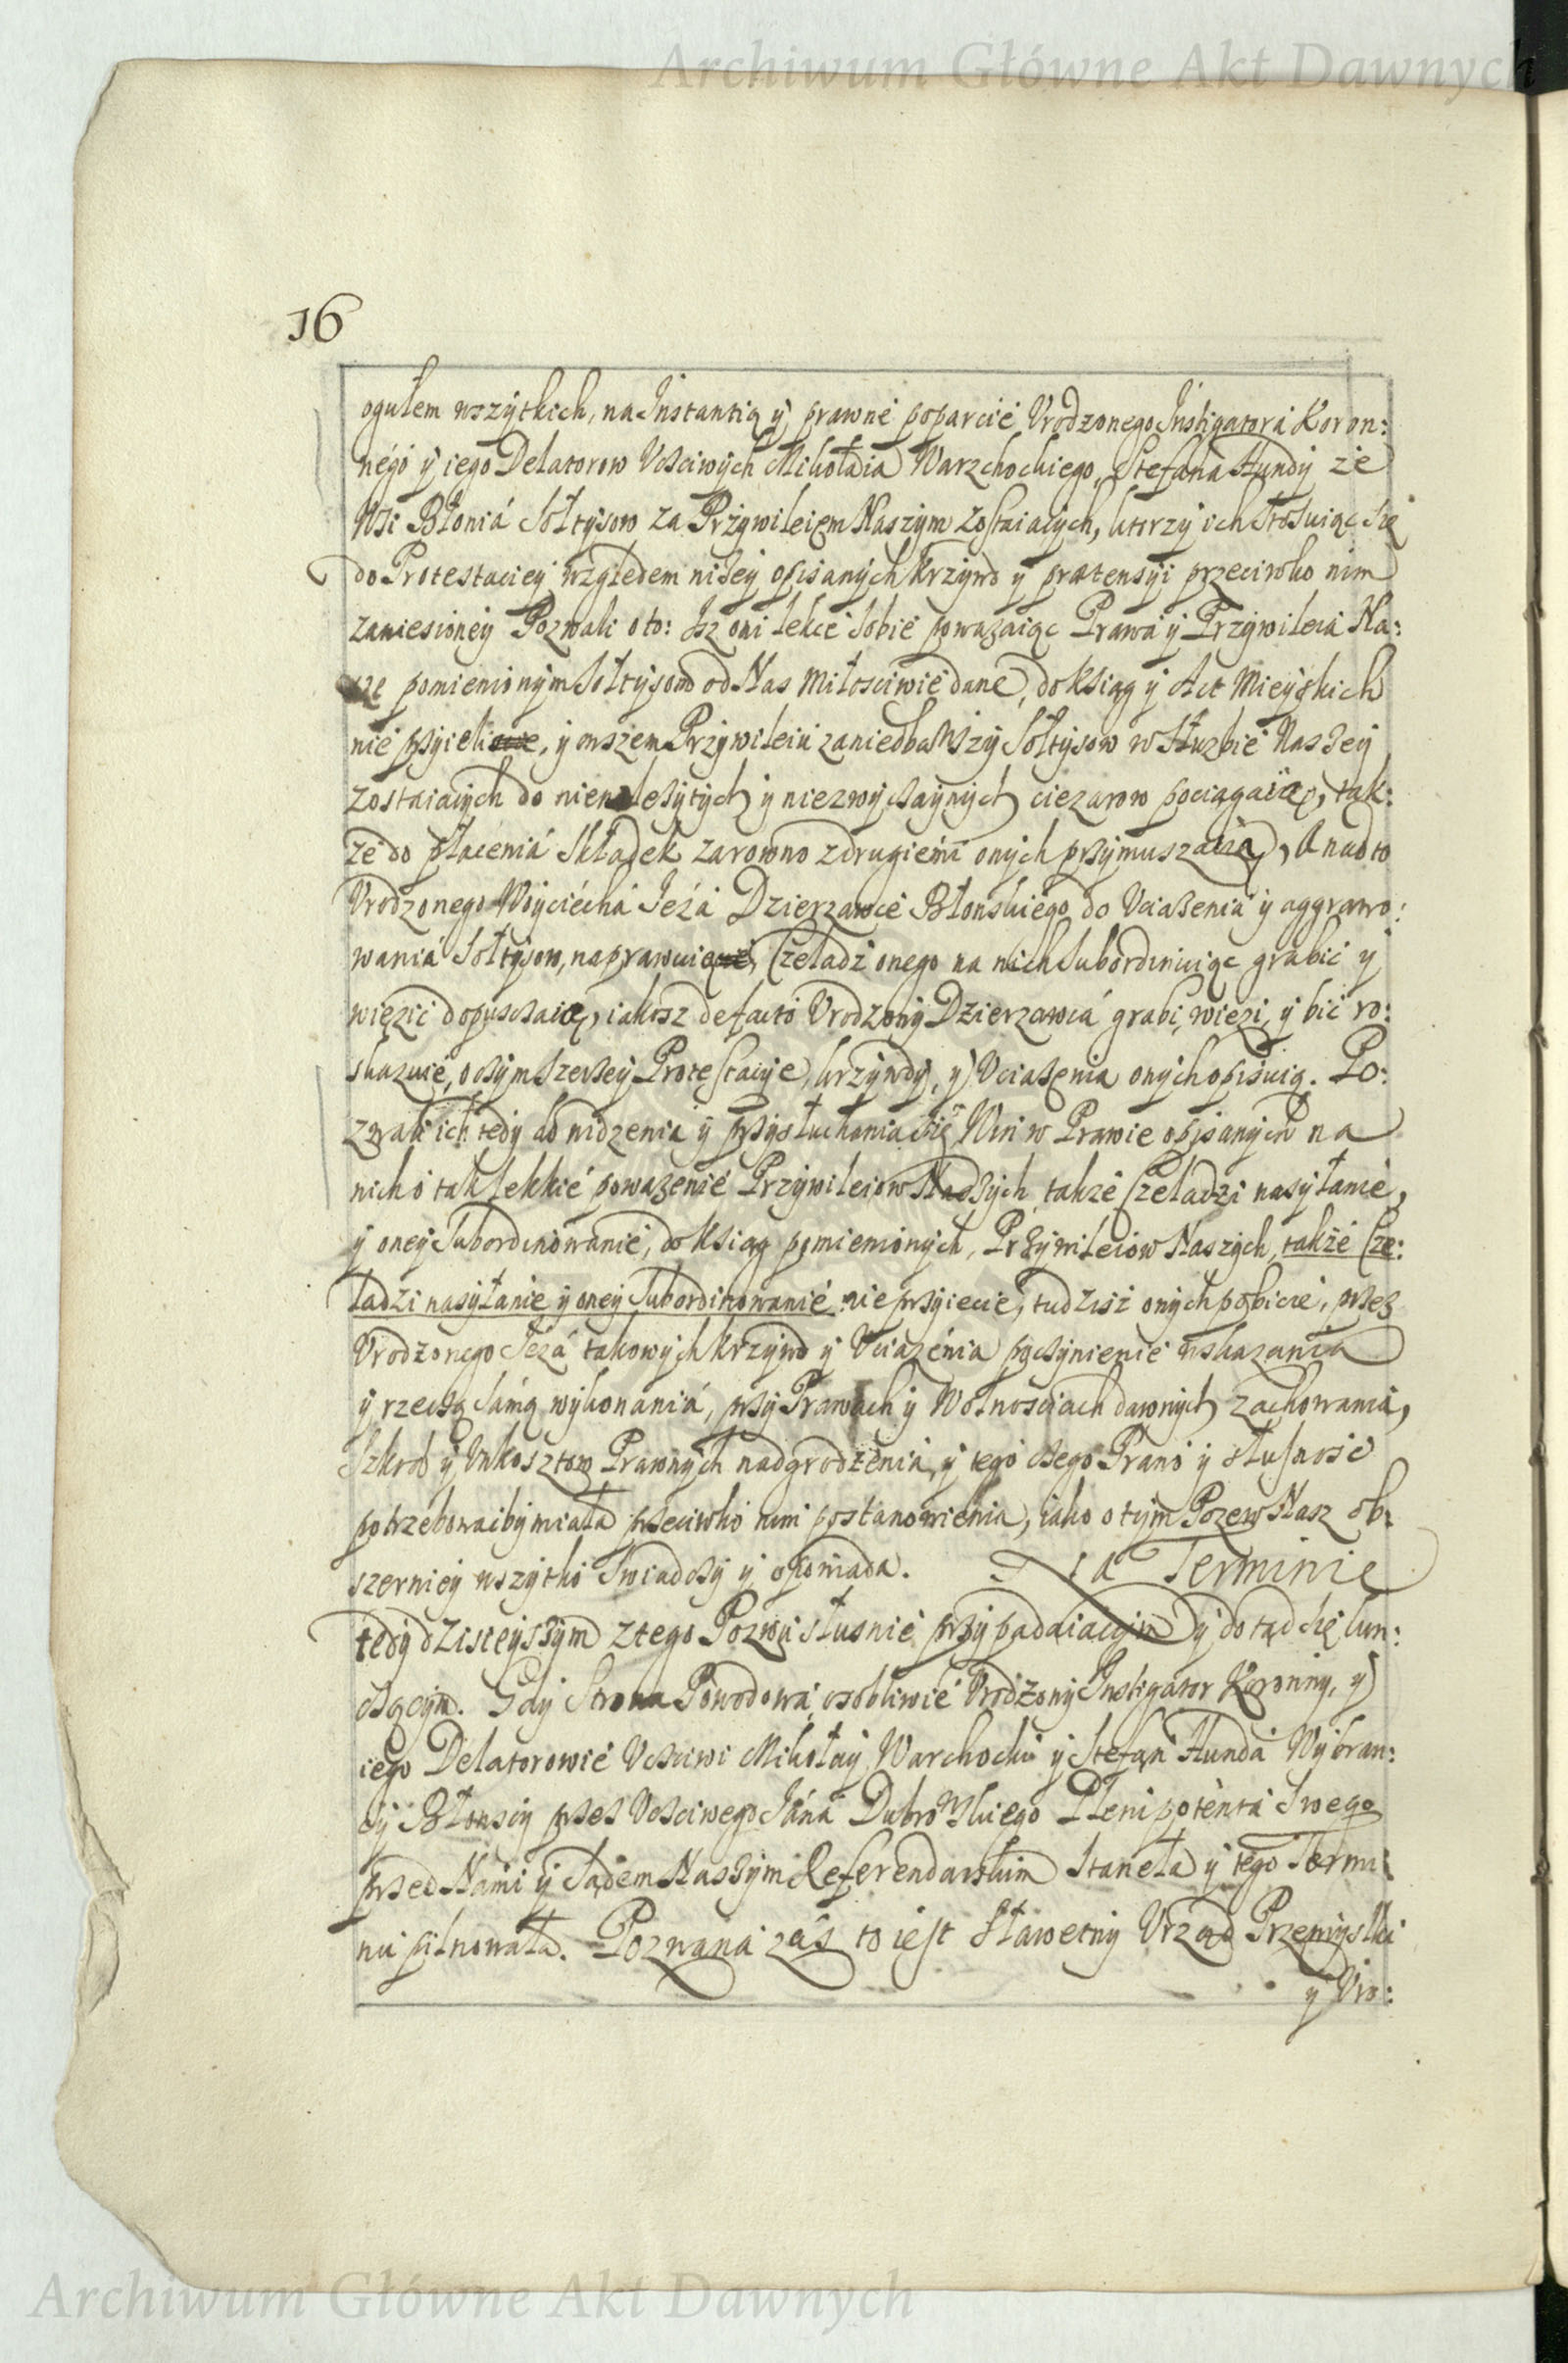 Archiwum Główne Akt Dawnych
16
ogułem wszytkich, na Instantią y prawne poparcie Vrodzonego Instigatora Koron:
nego y iego Delatorow Vczciwych Mikołaia Warzchockiego, Stefana Hundy ze
Wsi Błonia Sołtysow za Przywileiem Naszym zostaiących, ktorzy ich stosuiąc się
do Protestaciey względem niżey opisanych krzywd y prætensyi przeciwko nim
zaniesioney Pozwali o to: Isz oni lekce sobie poważaiąc Prawa y Przywileia Na:
sze pomienionym Sołtysom od Nas Miłosciwie dane, do Ksiąg y Act Mieyskich
nie przyieli, y owszem Przywileia zaniedbawszy Sołtysow w Służbie Naszey
zostaiących do nienależytych y niezwyczaynych ciezarow pociągaią, tak:
ze do płacenia Składek zarowno z drugiemi onych przymuszaią, A nadto
Vrodzonego Woyciecha Jeża Dzierzawce Błonskiego do Vciążenia y aggrawo:
wania Sołtysow, naprawuią, Czeladz onego na nich Subordinuiąc grabić y
więzić dopuszczaią, iakosz de facto Vrodzony Dzierzawca grabi, więzi, y bić ro:
skazuie, o czym szerzey Protestacye, krzywdy, y Vciążenia onych opisuią. Po:
zwali ich tedy do widzenia y przysłuchania się Win w Prawie opisanych na
nich o tak lekkie poważenie Przywileiow Naszych, także Czeladzi nasyłanie,
y oney Subordinowanie, do Ksiąg pomienionych, Przywileiow Naszych, także Cze:
ladzi nasyłanie y oney Subordinowanie nie przyiecie, tudzisz onych pobicie, przez
Vrodzonego Jeża takowych krzywd y Vciążenia poczynienie wskazania
y rzeczą samą wykonania, przy Prawach y Wolnosciach dawnych zachowania,
Szkod y Vnkosztow Prawnych nadgrodzenia, y tego czego Prawo y słusnosc
potrzebowaćby miała przeciwko nim postanowienia, iako o tym Pozew Nasz ob:
szerniey wszytko swiadczy y opowiada. Na Terminie
tedy dzisieyszym z tego Pozwu słusnie przypadaiącym y dotąd się kon:
czącym. Gdy Strona Powodowa, osobliwie Vrodzony Instigator Koronny, y
iego Delatorowie Vczciwi Mikołay Warchocki y Stefan Hunda Wybran:
cy Błonscy przez Vczciwego Jana Dubrowskiego Plenipotenta Swego
przed Nami y Sądem Naszym Referendarskim Staneła y tego Termi:
nu pilnowała. Pozwana zaś to iest Sławetny Vrząd Przemyslki
y Vro:
Archiwum Główne Akt Dawnych